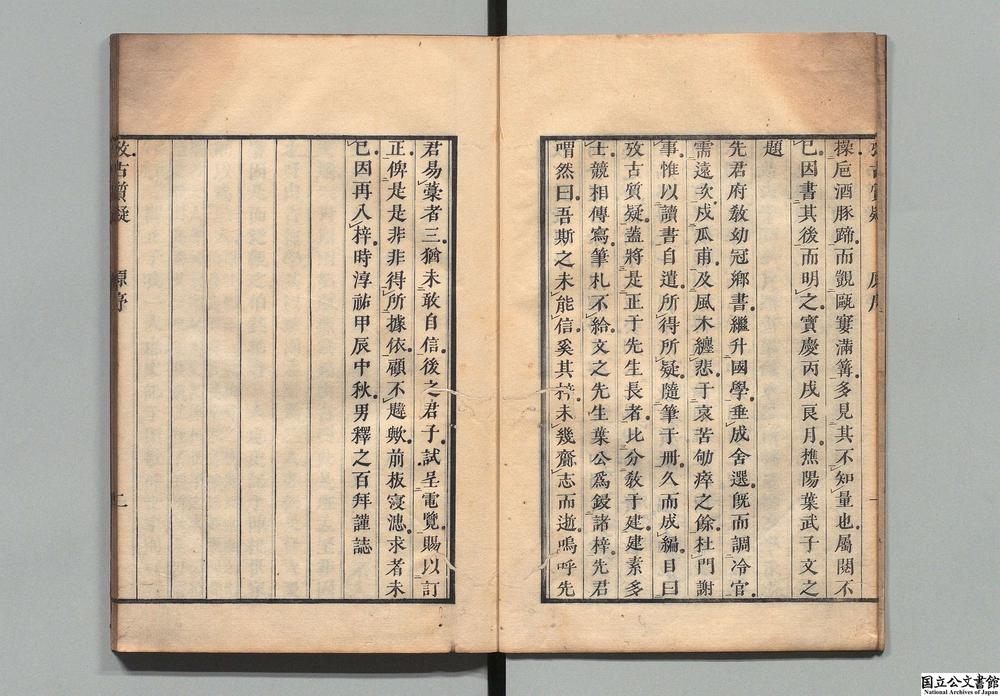 操巵酒豚蹄而觀甌窶滿篝多見其不知量也屬閱不
已因書其後而明之寶慶丙戌良月樵陽葉武子文之
題
先君府敎幼冠鄉書繼升國學垂成舍選旣而調冷官
需遠次戍瓜甫及風木纏悲于哀苦劬瘁之餘杜門謝
事惟以讀書自遣所得所疑隨筆于冊久而成編目曰
攷古質疑蓋將是正于先生長者比分敎于建建素多
士競相傳寫筆札不給文之先生葉公爲鋟諸梓先君
喟然曰吾斯之未能信奚其梓未幾齎志而逝嗚呼先
君易藁者三猶未敢自信後之君子試呈電覽賜以訂
正俾是是非非得所據依顧不韙歟前板寖漶求者未
已因再入梓時淳祐甲辰中秋男釋之百拜謹誌
攷古質疑 原序 二
国立公文書館
National Archives of Japan